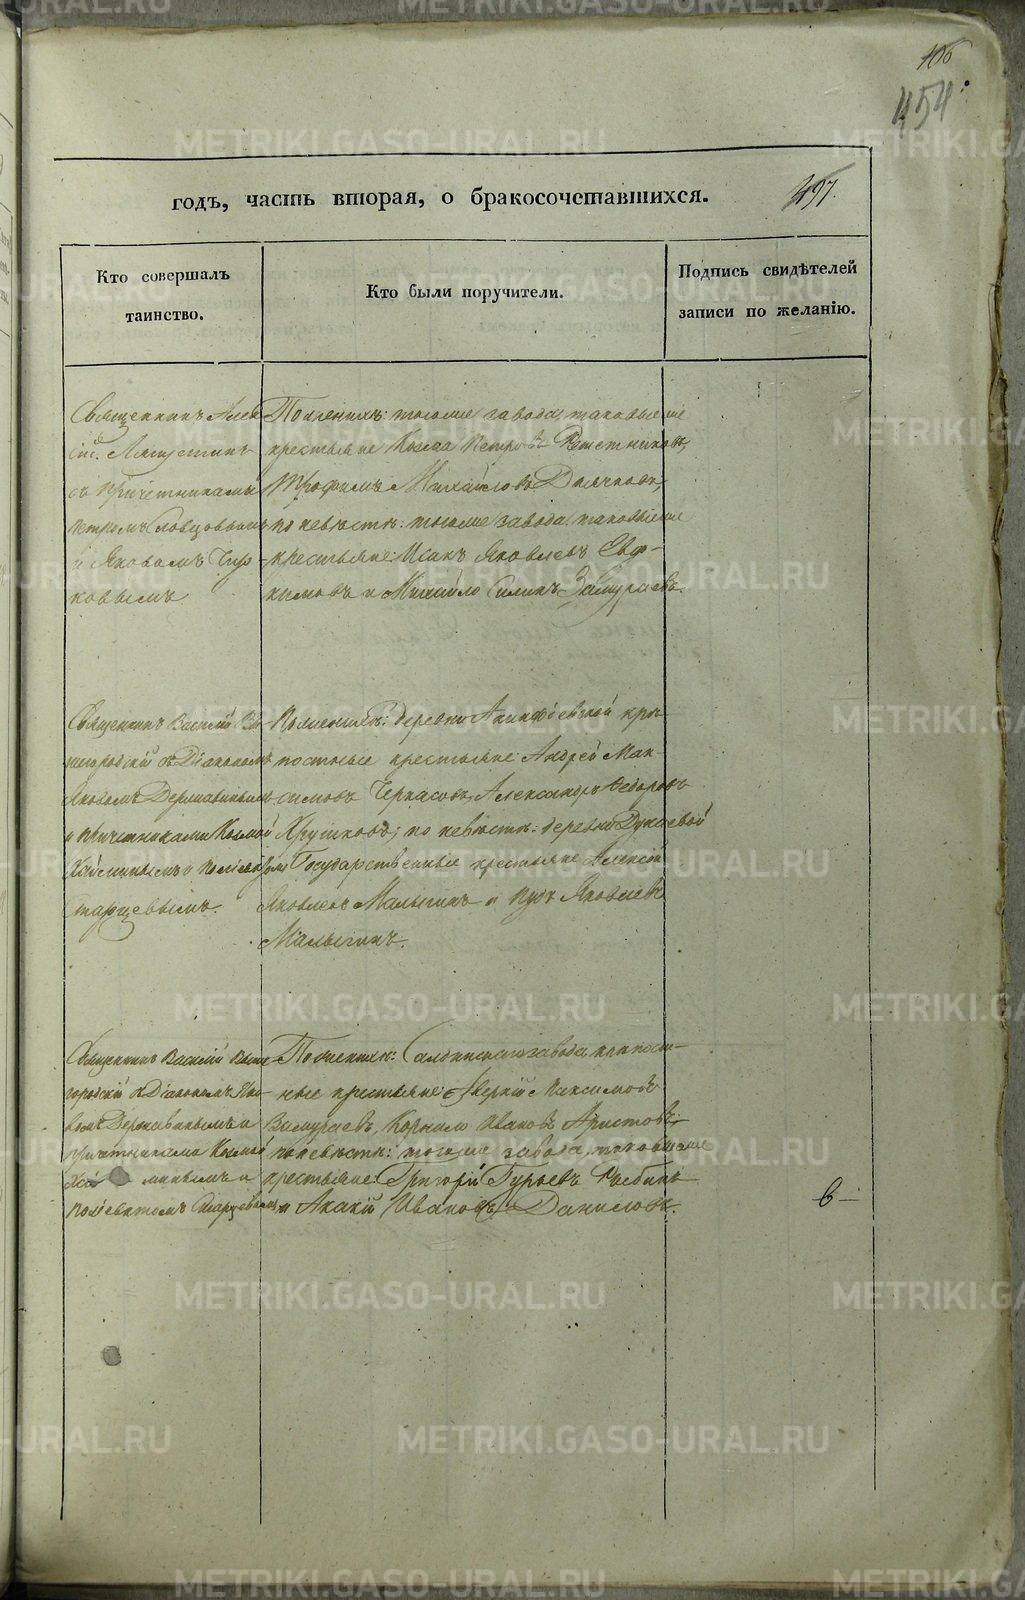 106
454
497.
годъ, часть вторая, о бракосочетавшихся.
Кто совершалъ
таинство.
Кто были поручители.
Подпись свидѣтелей
записи по желанію.
Священникъ Алек
сій
съ причетниками
Петромъ Словцовымъ
и Яковомъ
ковымъ
По женихѣ: тогоже завода таковые же
крестьяне Козма Петровъ Решетниковъ,
Трофимъ Михайловъ Дьячковъ,
по невѣстѣ: тогоже завода таковые же
крестьяне: Исакъ Яковлевъ Евф-
кимовъ и Михайло Силинъ Замураевъ.
Священникъ Василій Вы-
шегородскій съ Діакономъ
Яковомъ Державинымъ
и причетниками Козмой
Хайминымъ и Поліевктомъ
Старцевымъ.
По женихѣ: деревни Акинфіевской крѣ-
постные крестьяне Андрей Мак-
симовъ Черкасовъ, Александръ Ѳедоровъ
Хрушковъ; по невѣстѣ: деревни Дукаевой
Государственные крестьяне Алексій
Яковлевъ Малыгинъ и Пудъ Яковлевъ
Малыгинъ.
Священникъ Василій Выше
городскій съ Діакономъ Яко-
вомъ Державинымъ и
причетниками Козмой
Хайминымъ и
Поліевктомъ Старцевымъ
По женихѣ: Салдинскаго завода крѣпост-
ные крестьяне: Аверкій Максимовъ
Замураевъ, Корнило Ивановъ Аристовъ;
по невѣстѣ: тогоже завода таковые же
крестьяне Григорій Гурьевъ Рябинъ
и Акакій Ивановъ Даниловъ.
6 –
METRIKI.GASO-URAL.RU